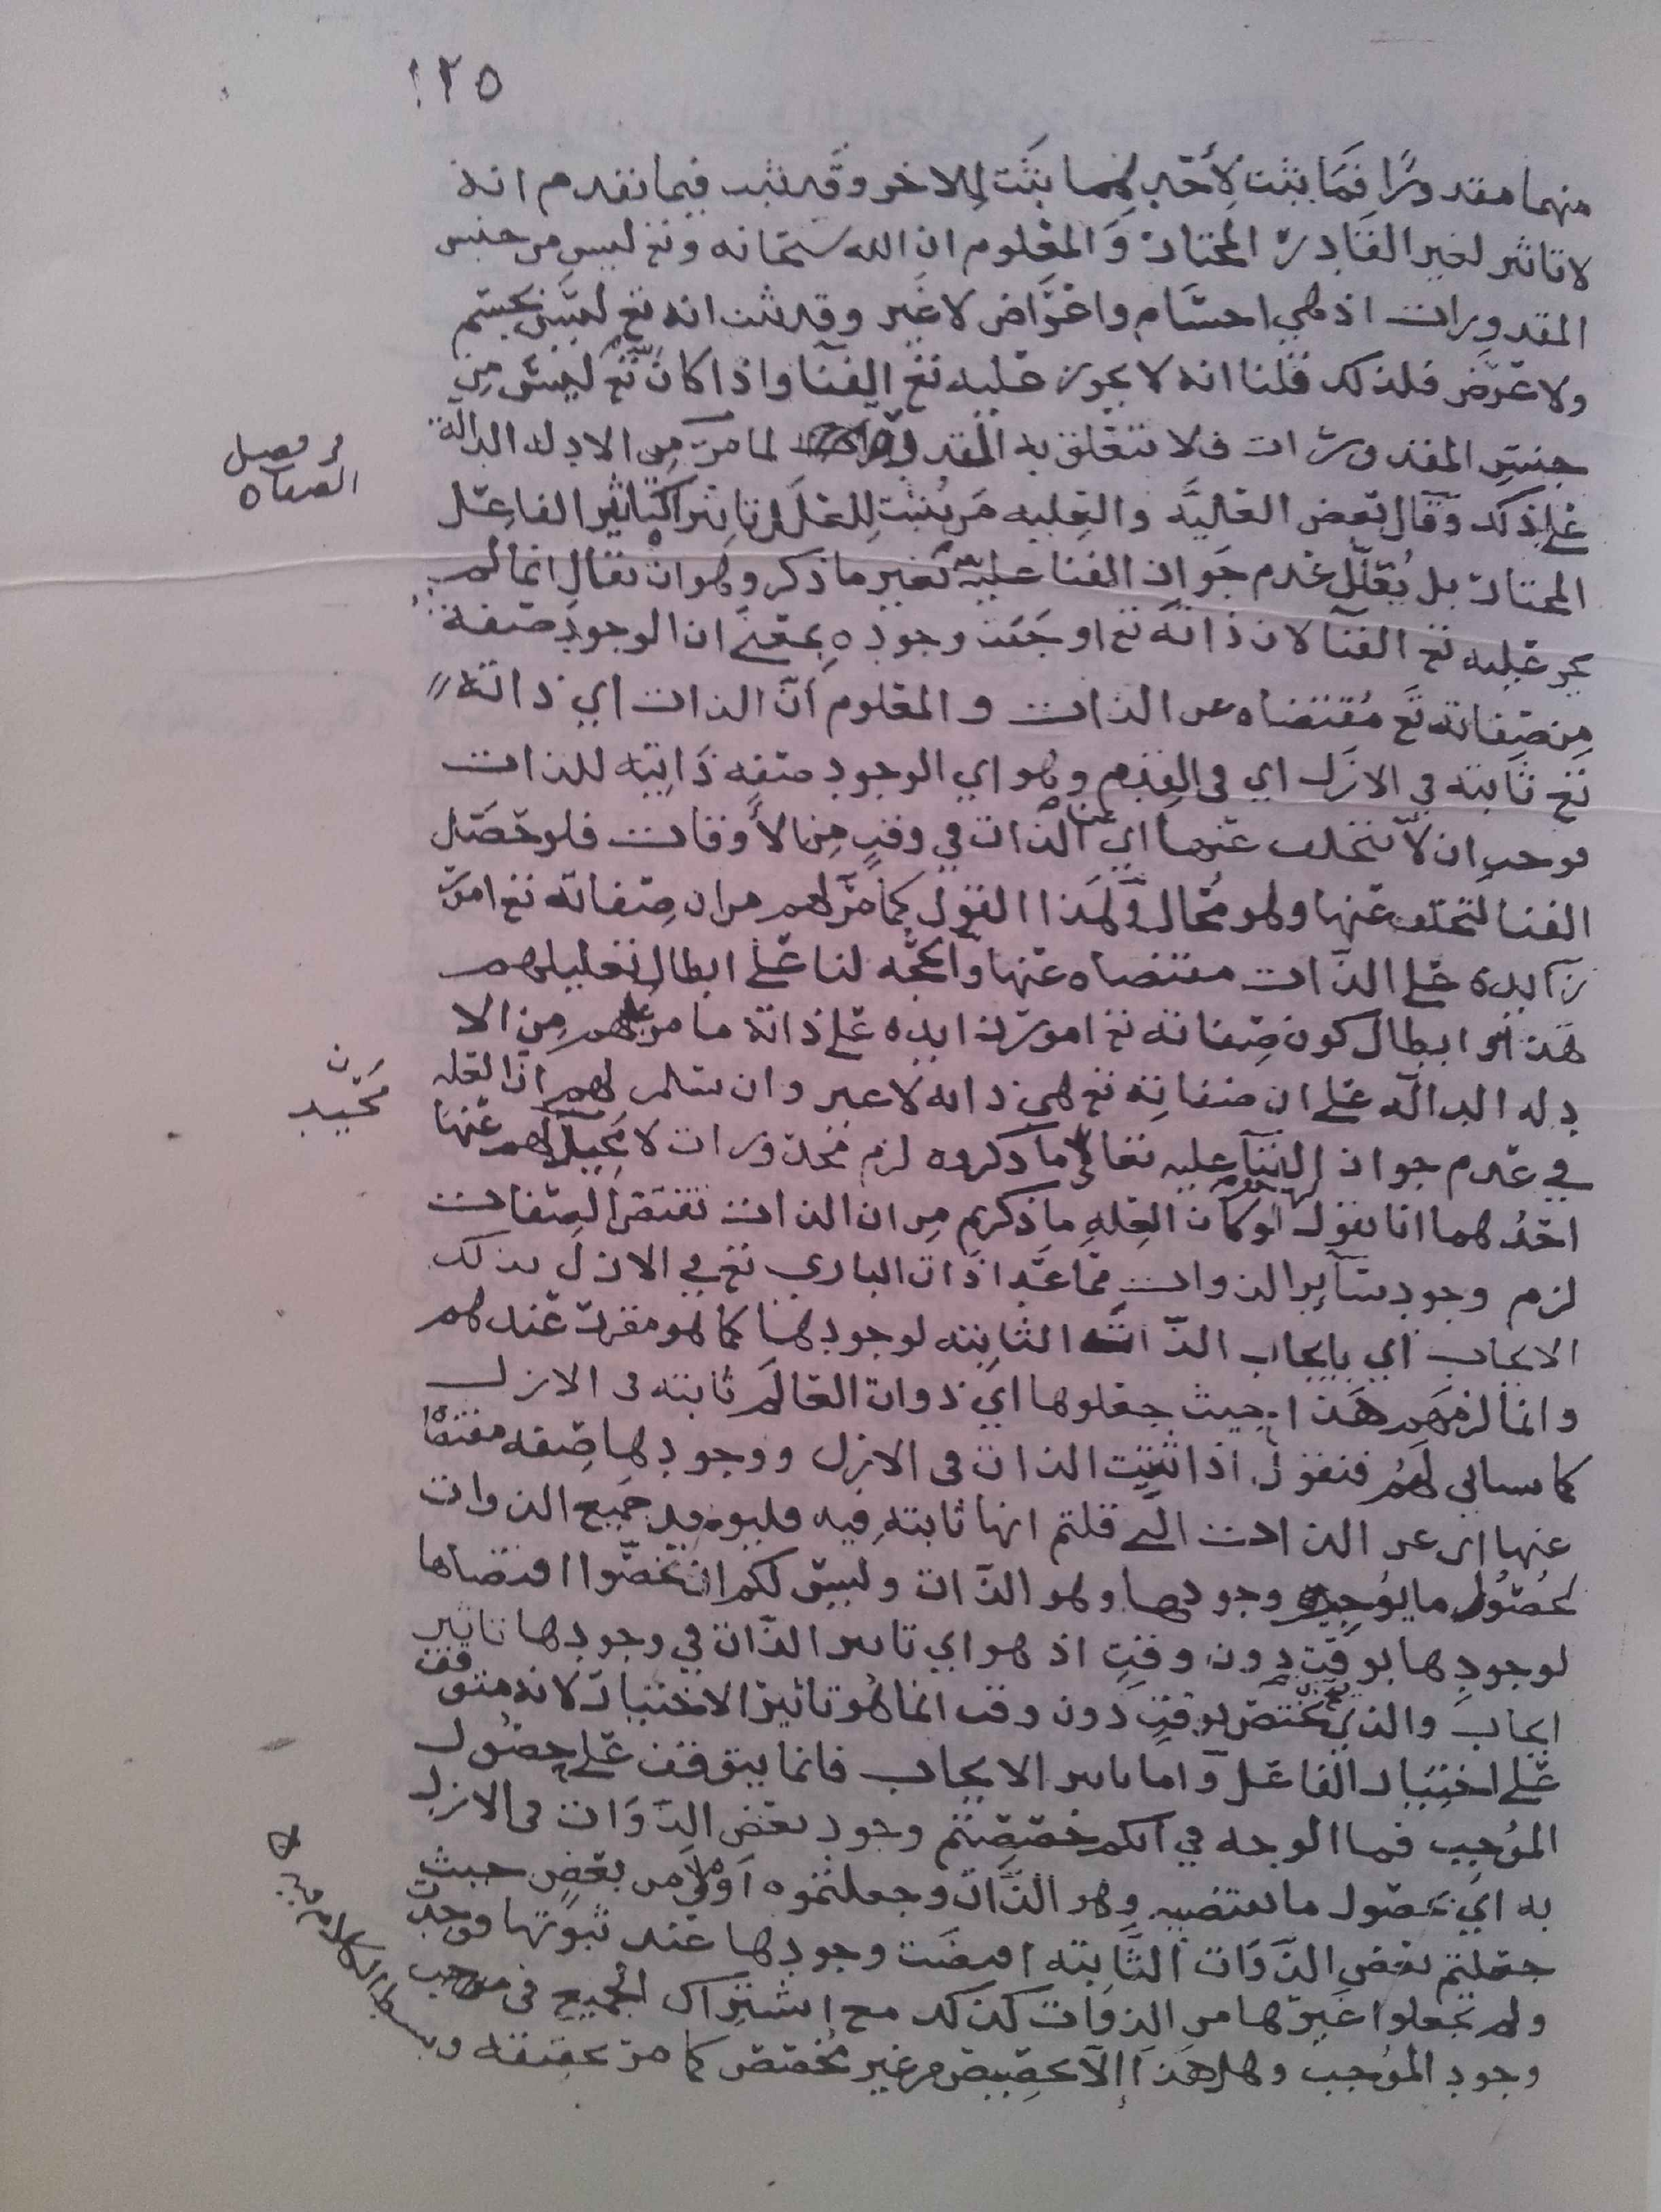 ١٢٥
منهما مقدورًا فما يثبت لأحدهما يثبت للاخر وقد ثبت فيما تقدم انه
لا تاثير لغير القادر المختار والمعلوم ان الله سبحانه وتع ليس من جنس
المقدورات اذ هي اجسام واعراض لا غير وقد ثبت انه تع ليس بجسم
ولا عرض فلذلك قلنا انه لا يجوز عليه تع الفنا واذا كان تع ليس من
جنس المقدورات فلا تتعلق به القدرة لما مر من الادله الدالة
من فصل
الصفات
على ذلك وقال بعض العليه والعليه من يثبت للعلل تاثيرا كتاثير الفاعل
المختار بل يعلل عدم جواز الفنا عليه بغير ما ذكر وهو ان يقال انما لم
يجز عليه تع الفنا لان ذاته تع اوجبت وجوده بمعنى ان الوجود صفة
من صفاته تع مقتضاه عن الذات والمعلوم أن الذات اي ذاته
تع ثابته في الازل اي في القدم وهو اي الوجود صفه ذاتيه للذات
فوجب ان لا يتخلف عنها اي عن الذات في وقتٍ من الأوقات فلو حصل
الفنا لتخلف عنها وهو محال ولهذا القول كما مر لهم من ان صفاته تع امور
زايده على الذات مقتضاه عنها والحجه لنا على ابطال تعليلهم
هذا وابطال كون صفاته تع امور زايده على ذاته ما مر لهم من الا
دله الداله على ان صفاته تع هي ذاته لا غير وان سلم لهم ان العله
ن
محيد
في عدم جواز الفنا عليه تعالى ما ذكروه لزم محذورات لا محيد لهم عنها
احدهما انا نقول لو كان العله ما ذكرتم من ان الذات تقتضي الصفات
لزم وجود سآير الذوات مما عدا ذات الباري تع في الازل بذلك
الايجاب اي بايجاب الذات الثابته لوجودها كما هو مقرر عندهم
وانما لزمهم هذا حيث جعلوها اي ذوات العالم ثابته في الازل
كما سياتي لهم فنقول اذا ثبتت الذات في الازل ووجودها صفه مقتضاه
عنها اي عن الذات التي قلتم انها ثابته فيه فليوجد جميع الذوات
لحصول ما يوجب وجودها وهو الذات وليس لكم ان تخصوا اقتضاها
لوجودها بوقت دون وقتٍ اذ هو اي تاثير الذات في وجودها تاثير
ايجاب والذي يختص بوقتٍ دون وقت انما هو تاثير الاختيار لانه متوقف
على اختيار الفاعل وأما تاثير الايجاب فانما يتوقف على حصول
الموجب فما الوجه في انكم خصصتم وجود بعض الذوات في الازل
به اي بحصول ما يقتضيه وهو الذات وجعلتموه أولى من بعض حيث
جعلتم بعض الذوات الثابته اقتضت وجودها عند ثبوتها فوجدت
ولم تجعلوا غيرها من الذوات كذلك مع اشتراك الجميع في موجب
وجود الموجب وهل هذا إلا تخصيص من غير مخصص كما مر تحقيقه و
بسط الكلام فيه